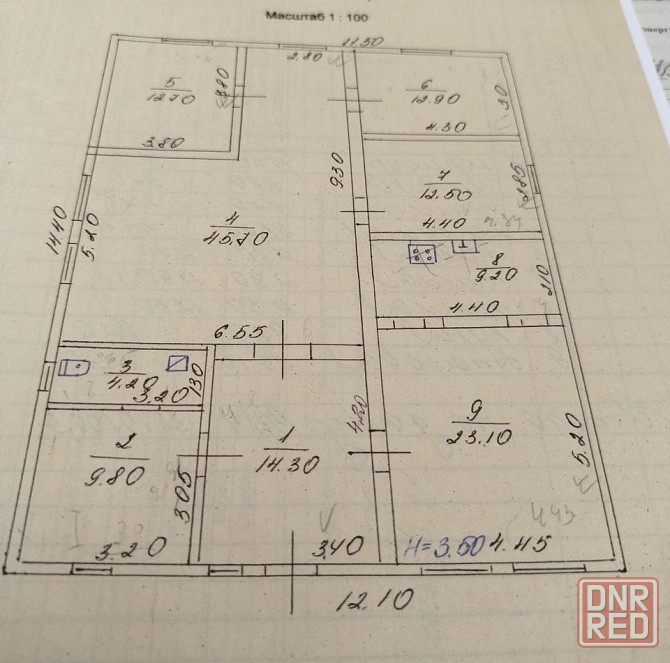 Масштаб 1 : 100
11.50
2.80
5
12.70
3.80
3.80
6
12.90
4.30
9.30
7
12.50
4.40
14.40
5.20
4
45.70
8
9.20
2.10
4.40
6.55
3
4.20
1.30
3.20
4.20
9
23.10
5.20
2
9.80
3.05
1
14.30
3.20
3.40
H=3.50
4.45
4.43
12.10
DNR
RED